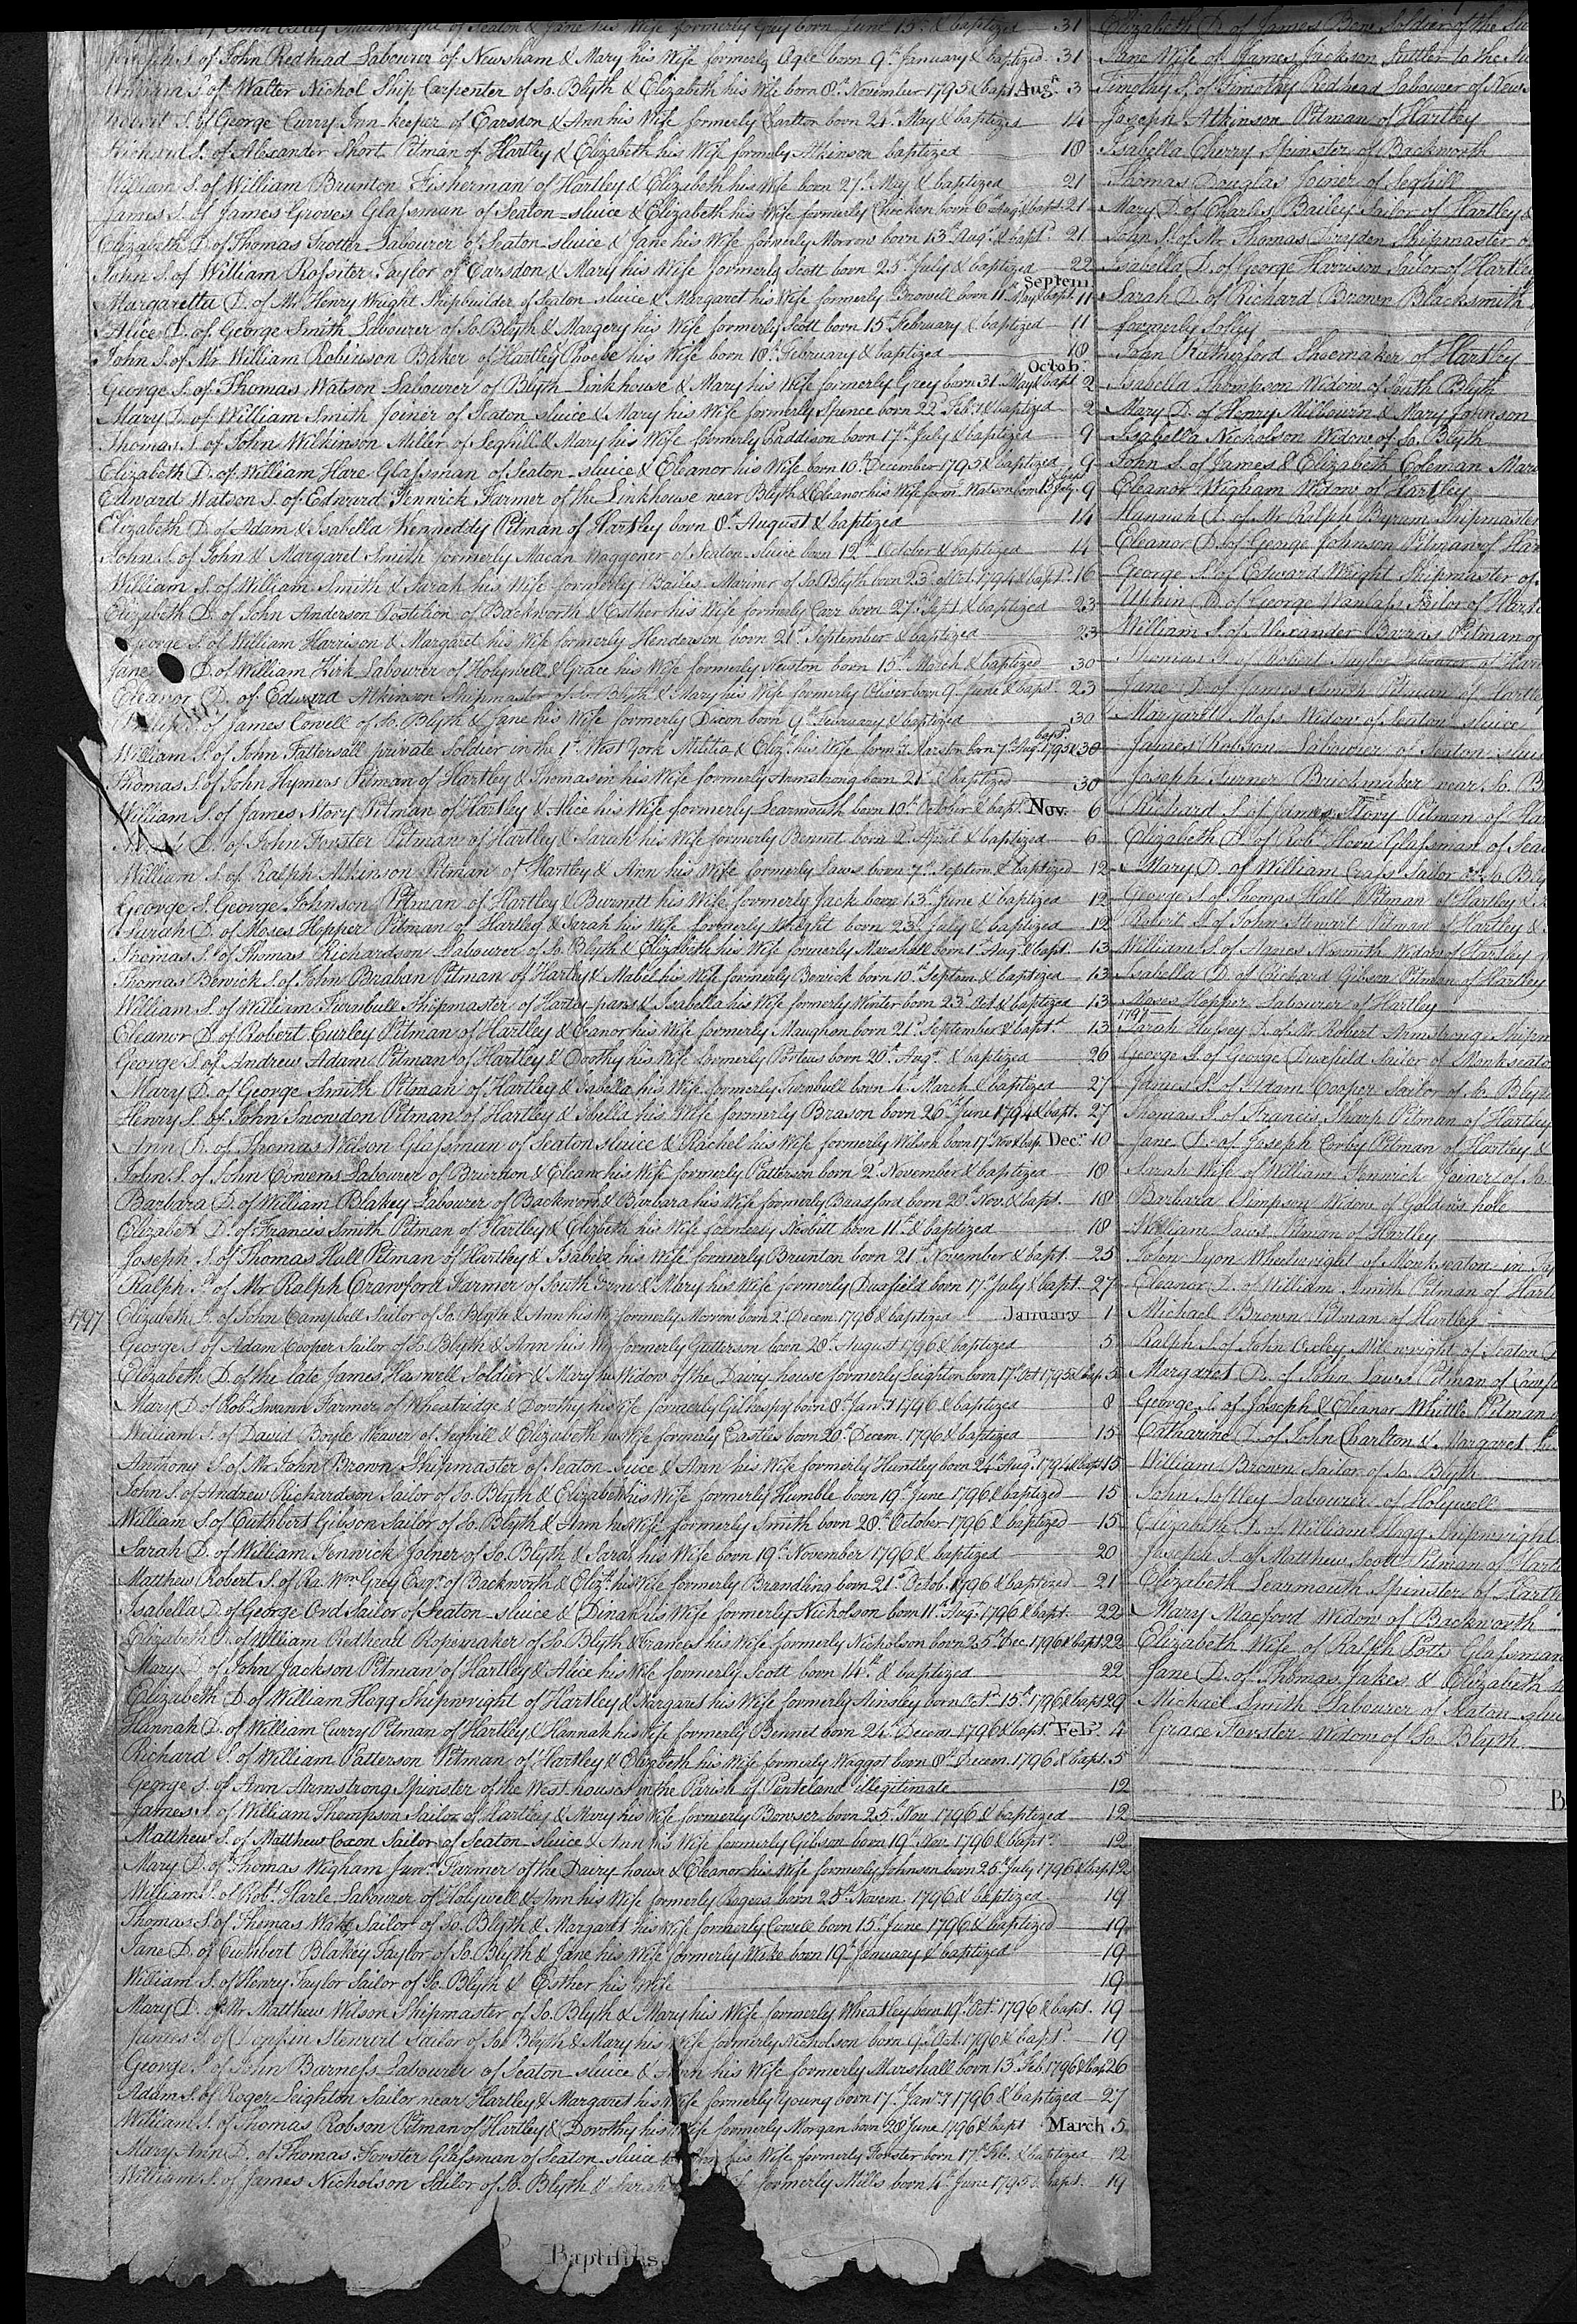 Wheelwright of Seaton & Jane his Wife formerly Grey born June 15th & baptized 31
Joseph S. of John Redhead Labourer of Newsham & Mary his Wife formerly Ogle born 9th January & baptized 31
William S. of Walter Nichol Ship Carpenter of So. Blyth & Elizabeth his Wife born 8th November 1795 & bapt. Augst 3
Robert S. of George Curry Inn keeper of Earsdon & Ann his Wife formerly Charlton born 21st May & baptized 14
Richard S. of Alexander Short Pitman of Hartley & Elizabeth his Wife formerly Atkinson baptized 18
William S. of William Brunton Fisherman of Hartley & Elizabeth his Wife born 27th May & baptized 21
James S. of James Groves Glassman of Seaton-sluice & Elizabeth his Wife formerly Chicken born 6th Augt & bapt. 21
Elizabeth D. of Thomas Trotter Labourer of Seaton-sluice & Jane his Wife formerly Morrow born 13th Augt & bapt. 21
John S. of William Rossiter Taylor of Earsdon & Mary his Wife formerly Scott born 25th July & baptized 22
Septem.
Margaretta D. of Mr Henry Wright Shipbuilder of Seaton sluice & Margaret his Wife formerly Browell born 11th May & bapt. 11
Alice D. of George Smith Labourer of So. Blyth & Margery his Wife formerly Scott born 15th February & baptized 11
John S. of Mr William Robinson Baker of Hartley Phoebe his Wife born 18th February & baptized 18
Octob.
George S. of Thomas Watson Labourer of Blyth Linkhouse & Mary his Wife formerly Grey born 31 May & bapt 2
Mary D. of William Smith Joiner of Seaton sluice & Mary his Wife formerly Spence born 22d Feby & baptized 2
Thomas S. of John Wilkinson Miller of Seghill & Mary his Wife formerly Paddison born 17th July & baptized 9
Elizabeth D. of William Hare Glassman of Seaton-sluice & Eleanor his Wife born 10th December 1795 & baptized 9
Edward Watson S. of Edward Fenwick Farmer of the Linkhouse near Blyth & Eleanor his Wife form. Watson born 13 July 9
Elizabeth D. of Adam & Isabella Kenneddy Pitman of Hartley born 8th August & baptized 14
John S. of John & Margaret Smith formerly Macan Waggoner of Seaton-sluice born 12th October & baptized 14
William S. of William Smith & Sarah his Wife formerly Bailes Mariner of So. Blyth born 23d Octr 1794 & bapt. 16
Elizabeth D. of John Anderson Postilion of Backworth & Esther his Wife formerly Carr born 27th Sept & baptized 23
George S. of William Harrison & Margaret his Wife formerly Henderson born 21st September & baptized 23
Jane D. of William Kirk Labourer of Holywell & Grace his Wife formerly Heuston born 15th March & baptized 30
Eleanor D. of Edward Atkinson Shipmaster of So. Blyth & Mary his Wife formerly Oliver born 9th June & bapt. 23
S. of James Cowell of So. Blyth & Jane his Wife formerly Dixon born 9th February & baptized 30
William S. of John Tattersall private Soldier in the 1st West York Militia & Eliz. his Wife form. Marston born 7th Aug. 1795 & bapt. 30
Thomas S. of John Hymers Pitman of Hartley & Thomasin his Wife formerly Armstrong born 21st & baptized 30
William S. of James Story Pitman of Hartley & Alice his Wife formerly Learmouth born 10th October & bapt. Nov. 6
D. of John Forster Pitman of Hartley & Sarah his Wife formerly Bennet born 2d April & baptized 6
William S. of Ralph Atkinson Pitman of Hartley & Ann his Wife formerly Laws born 7th Septem & baptized 12
George S. George Johnson Pitman of Hartley & Burnett his Wife formerly Jack born 13th June & baptized 12
Sarah D. of Moses Hepper Pitman of Hartley & Sarah his Wife formerly Wright born 23d July & baptized 12
Thomas S. of Thomas Richardson Labourer of So. Blyth & Elizabeth his Wife formerly Marshall born 1st Aug. & bapt. 13
Thomas Berwick S. of John Braban Pitman of Hartley & Mabel his Wife formerly Berwick born 10th Septem. & baptized 13
William S. of William Turnbull Shipmaster of Hartley pans & Isabella his Wife formerly Winter born 23d Oct. & baptized 13
Eleanor D. of Robert Curley Pitman of Hartley & Eleanor his Wife formerly Maughan born 21st September & bapt. 13
George S. of Andrew Adam Pitman of Hartley & Doothy his Wife formerly Porteus born 20th Augt & baptized 26
Mary D. of George Smith Pitman of Hartley & Isabella his Wife formerly Turnbull born 4th March & baptized 27
Henry S. of John Snowdon Pitman of Hartley & Isbella his Wife formerly Brason born 26th June 1794 & bapt. 27
Ann D. of Thomas Wilson Glassman of Seaton sluice & Rachel his Wife formerly Wilson born 17th Nov & bap. Decr 10
John S. of John Cowens Labourer of Brierdon & Eleanr his Wife formerly Patterson born 2d November & baptized 18
Barbara D. of William Blakey Labourer of Backworth & Barbara his Wife formerly Bradford born 20th Nov. & bapt. 18
Elizabeth D. of Francis Smith Pitman of Hartley & Elizbeth his Wife formerly Nesbitt born 11th & baptized 18
Joseph S. of Thomas Hall Pitman of Hartley & Isabela his Wife formerly Brunton born 21st November & bapt. 25
Ralph S. of Mr Ralph Crawford Farmer of South & Mary his Wife formerly Duxfield born 17th July & bapt. 27
1797 Elizabeth D. of John Campbell Sailor of So. Blyth & Ann his W. formerly Morrow born 2d Decem 1796 & baptized January 1
George S. of Adam Cooper Sailor of So. Blyth & Ann his W. formerly Gatterson born 28th August 1796 & baptized 5
Elizabeth D. of the late James Haswell Soldier & Mary his Widow of the Dairy house formerly Leighton born 17th Oct 1795 & bap. 5
Mary D. of Robt Swann Farmer of Wheatridge & Dorothy his Wife formaerly Gilhespey born 8th Jany 1796 & baptized 8
William S. of David Boyle Weaver of Seghill & Elizabeth his Wife formerly Eastles born 20th Decem. 1796 & baptized 15
Anthony S. of Mr John Brown Shipmaster of Seaton-sluice & Ann his Wife formerly Huntley born 24th Augt 1794 & bapt 15
John S. of Andrew Richardson Sailor of So. Blyth & Elizabeth his Wife formerly Humble born 19th June 1796 & baptized 15
William S. of Cuthbert Gibson Sailor of So. Blyth & Ann his Wife formerly Smith born 28th October 1796 & baptized 15
Sarah D. of William Fenwick Joiner of So. Blyth & Sarah his Wife born 19th November 1796 & baptized 20
Matthew Robert S. of Ra. Wm Grey Esqr of Backworth & Elizth his Wife formerly Brandling born 21st Octob. 1796 & baptized 21
Isabella D. of George Ord Sailor of Seaton-sluice & Dinah his Wife formerly Nicholson born 11th Augt 1796 & bapt. 22
Elizabeth D. of William Redhead Ropemaker of So. Blyth & Frances his Wife formerly Nicholson born 25th Dec. 1796 & bapt 22
Mary D. of John Jackson Pitman of Hartley & Alice his Wife formerly Scott born 14th & baptized 22
Elizabeth D. of William Hogg Shipwright of Hartley & Margaret his Wife formerly Ainsley born Octr 15th 1796 & bapt 29
Hannah D. of William Curry Pitman of Hartley & Hannah his Wife formerly Bennet born 24th Decem 1796 & bapt. Feby. 4
Richard S. of William Patterson Pitman of Hartley & Elizabeth his Wife formerly Waggot born 8th Decem. 1796 & bapt. 5
George S. of Ann Armstrong Spinster of the West houses in the Parish of Ponteland illegitimate 12
James S. of William Thompson Sailor of Hartley & Mary his Wife formerly Bowser born 25th Nov 1796 & baptized 12
Matthew S. of Matthew Coxon Sailor of Seaton-sluice & Ann his Wife formerly Gibson born 19th Nov. 1796 & bapt. 12
Mary D. of Thomas Wigham Junr Farmer of the Dairy house & Eleanor his Wife formerly Johnson born 25th July 1796 & bap 12
William S. of Robt Harle Labourer of Holywell & Ann his Wife formerly Rogers born 25th Novem. 1796 & baptized 19
Thomas S. of Thomas Wake Sailor of So. Blyth & Margaret his Wife formerly Cowell born 15th June 1796 & baptized 19
Jane D. of Cuthbert Blakey Taylor of So. Blyth & Jane his Wife formerly Wake born 19th January & baptized 19
William S. of Henry Taylor Sailor of So. Blyth & Esther his Wife 19
Mary D. of Mr Matthew Wilson Shipmaster of So. Blyth & Mary his Wife formerly Wheatley born 19th Octr 1796 & bapt. 19
James S. of Stewart Sailor of So. Blyth & Mary his Wife formerly Nicholson born 9th Oct. 1796 & bapt. 19
George S. of John Barness Labourer of Seaton-sluice & Ann his Wife formerly Marshall born 13th Feb. 1796 & bap 26
Adam S. of Roger Leighton Sailor near Hartley & Margaret his Wife formerly Young born 17th Jany 1796 & baptized 27
William S. of Thomas Robson Pitman of Hartley & Dorothy his Wife formerly Morgan born 20th June 1796 & bapt March 5
Mary Ann D. of Thomas Forster Glassman of Seaton-sluice his Wife formerly Forster born 17th Feb. & baptized 12
William S. of James Nicholson Sailor of So. Blyth & Sarah formerly Mills born 4th June 1795 & bapt. 19
Baptisms
Elizabeth D. of James Bone Soldier of the
Jane Wife of James Jackson Suttler to the
Timothy S. of Timothy Redhead Labourer of News
Joseph Atkinson Pitman of Hartley
Isabella Cherry Spinster of Backworth
Thomas Douglas Joiner of Seghill
Mary D. of Charles Bailey Sailor of Hartley &
John S. of Mr Thomas Dryden Shipmaster
Isabella D. of George Harrison Sailor of Hartley
Sarah D. of Richard Brown Blacksmith
formerly Jolley
John Rutherford Shoemaker of Hartley
Isabella Thompson Widow of South Blyth
Mary D. of Henry Milbourn & Mary Johnson
Isabella Nicholson Widow of So. Blyth
John S. of James & Elizabeth Coleman Mar
Eleanor Wigham Widow of Hartley
Hannah D. of Mr Ralph Byrum Shipmaster
Eleanor D. of George Johnson Pitman of Har
George S. of Edward Wright Shipmaster of
D. of George Wanlass Sailor of Hart
William S. of Alexander Barras Pitman of
Thomas S. of Robert Taylor Labourer of Har
Jane D. of James Smith Pitman of Hartle
Margaret Moss Widow of Seaton sluice
James Robson Labourer of Seaton-sluic
Joseph Turner Brickmaker near So. B
Richard S. of James Story Pitman of Har
Elizabeth D. of Robt Horn Glassman of Sea
Mary D. of William Crass Sailor of So. Bly
George S. of Thomas Hall Pitman of Hartley &
Robert S. of John Stewart Pitman of Hartley &
William S. of Agnes Nesmith Widow of Hartley
Isabella D. of Richard Gibson Pitman of Hartley
Moses Hepper Labourer of Hartley
1797
Sarah Hussey D. of Mr Robert Armstrong Shipm
George S. of George Duxfield Sailor of Monkseaton
James S. of Adam Cooper Sailor of So. Blyth
Thomas S. of Francis Sharp Pitman of Hartley
Jane D. of Joseph Corby Pitman of Hartley &
Sarah Wife of William Fenwick Joiner of So.
Barbara Simpson Widow of Goldens hole
William Laws Pitman of Hartley
John Lyon Wheelwright of Monkseaton in
Eleanor D. of William Smith Pitman of Hart
Michael Brown Pitman of Hartley
Ralph S. of John Oxley Millwright of Seaton
Margaret D. of John Laws Pitman of
George S. of Joseph & Eleanor Whittle Pitman
Catharine D. of John Charlton & Margaret his
William Brown Sailor of So. Blyth
John Softley Labourer of Holywell
Elizabeth D. of William Hogg Shipwright
Joseph S. of Matthew Scott Pitman of Hart
Elizabeth Learmouth Spinster of Hartle
Mary Macford Widow of Backworth
Elizabeth Wife of Ralph Potts Glassman
Jane D. of Thomas Jakes & Elizabeth
Michael Smith Labourer of Seaton-slui
Grace Forster Widow of So. Blyth
B